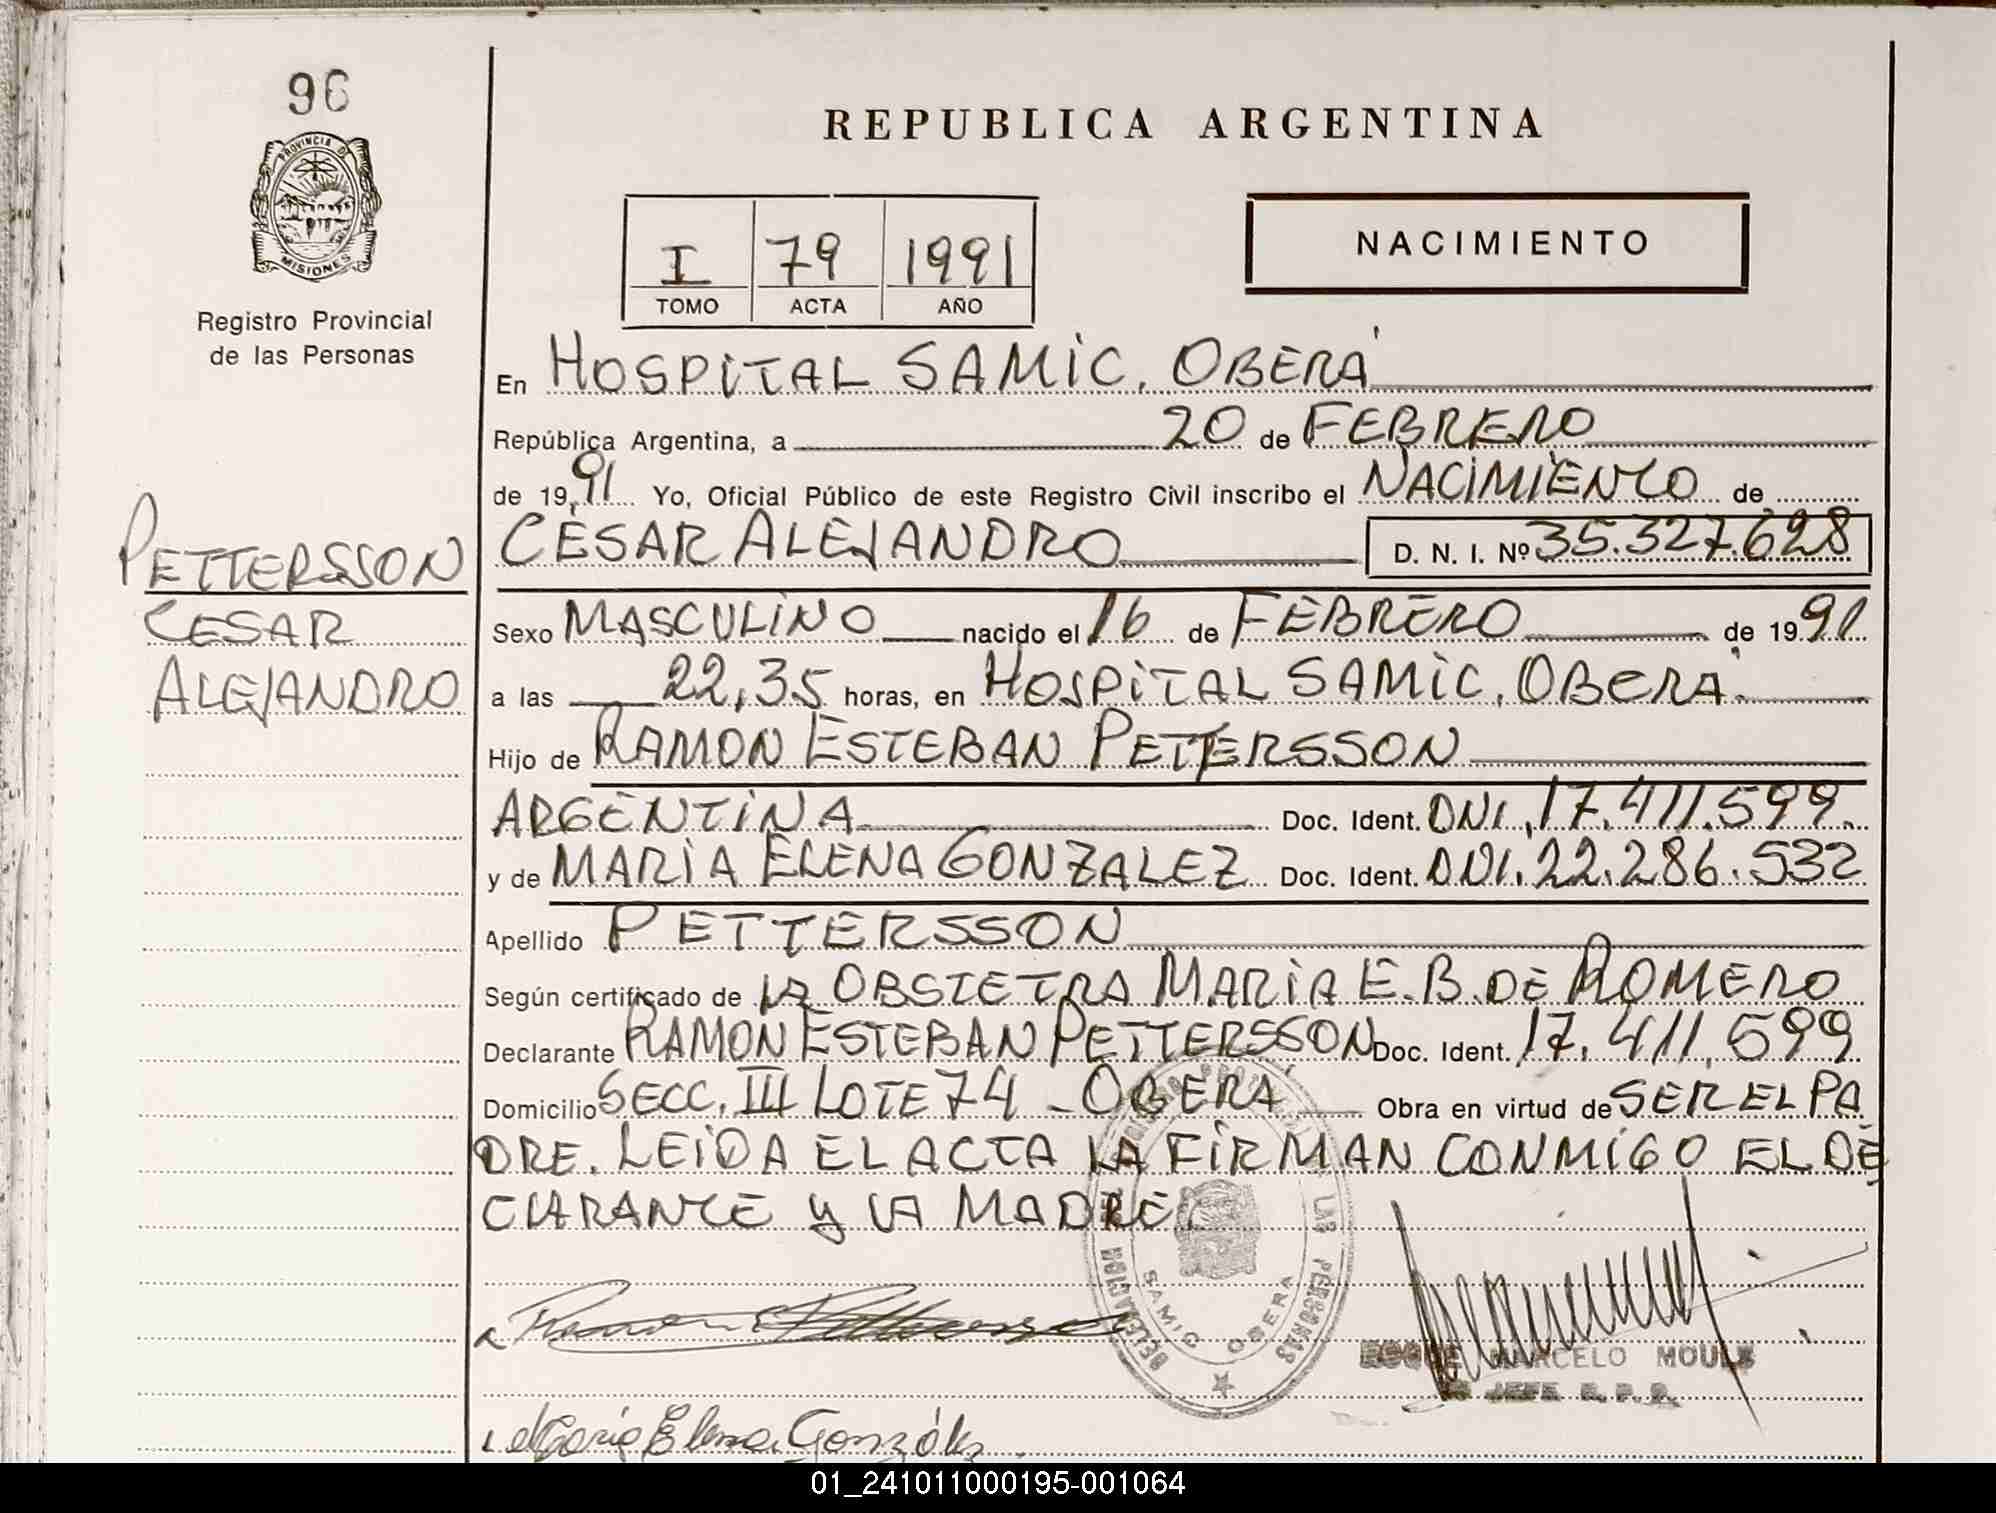 96
PROVINCIA D
MISIONES
Registro Provincial
de las Personas
PETTERSSON
CESAR
ALEJANDRO
REPUBLICA ARGENTINA
I 79 1991
TOMO ACTA AÑO
NACIMIENTO
En HOSPITAL SAMIC. OBERÁ
República Argentina, a 20 de FEBRERO
de 1991 Yo, Oficial Público de este Registro Civil inscribo el NACIMIENTO de
CESAR ALEJANDRO D. N. I. Nº 35.327.628
Sexo MASCULINO nacido el 16 de FEBRERO de 1991
a las 22,35 horas, en HOSPITAL SAMIC, OBERÁ
Hijo de RAMON ESTEBAN PETTERSSON
ARGENTINA Doc. Ident. DNI. 17.411.599
y de MARIA ELENA GONZALEZ Doc. Ident. DNI. 22.286.532
Apellido PETTERSSON
Según certificado de LA OBSTETRA MARIA E. B. DE ROMERO
Declarante RAMON ESTEBAN PETTERSSON Doc. Ident. 17.411.599
Domicilio SECC. III LOTE 74 - OBERÁ Obra en virtud de SER EL PA
DRE. LEIDA EL ACTA LA FIRMAN CONMIGO EL DE
CLARANTE y LA MADRE
LAS PERSONAS
DELEGACION
SAMIC OBERA
MARCELO
JEFE R. P. P.
Maria Elena González
01_241011000195-001064